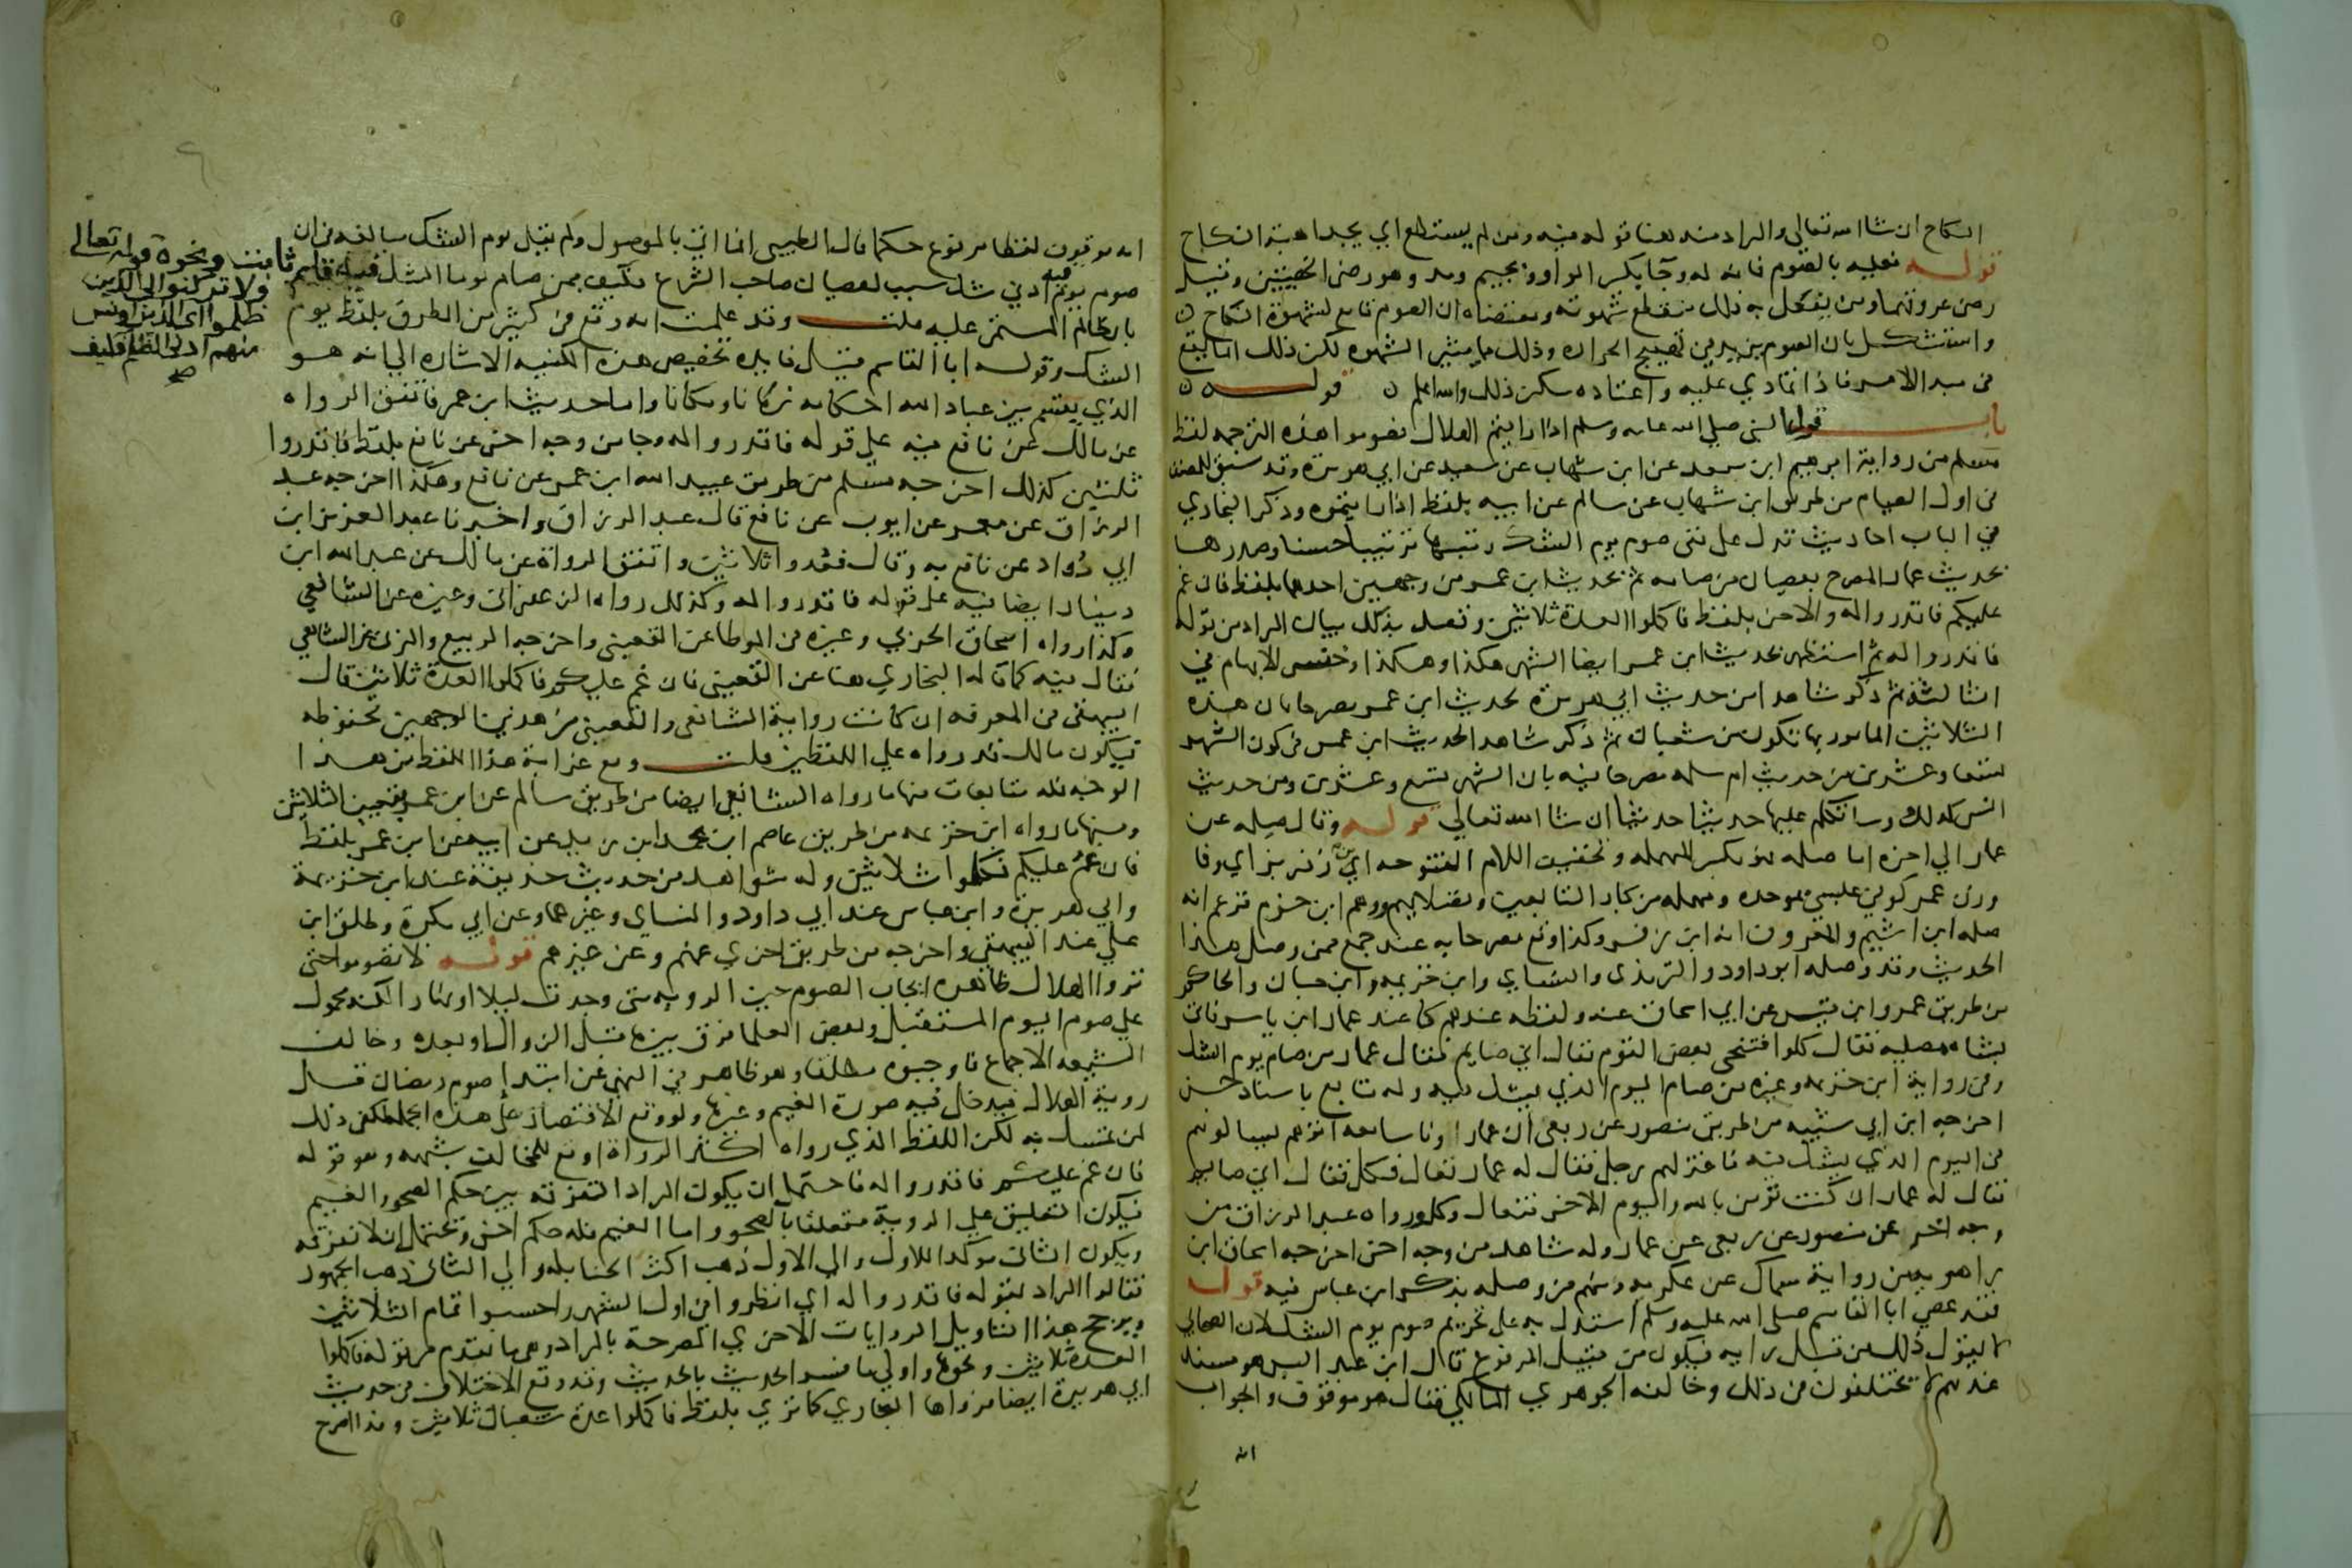 النكاح ان شا الله تعالى والمراد منه هنا قوله فيه ومن لم يستطع اي يجد اهبة النكاح
قوله فعليه بالصوم فانه له وجا بكسر الواو وبجيم ومد وهو رض الخصيتين وقيل
رض عروقهما ومن يفعل به ذلك تنقطع شهوته ومقتضاه ان الصوم قامع لشهوة النكاح
واستشكل بان الصوم يزيد في تهييج الحرارة وذلك مما يثير الشهوة لكن ذلك انما يقع
في مبدا الامر فاذا تمادي عليه واعتاده سكن ذلك والله اعلم قوله
باب قول النبي صلي الله عليه وسلم اذا رايتم الهلال فصوموا هذه الترجمة لفظ
مسلم من رواية ابرهيم ابن سعد عن ابن شهاب عن سعيد عن ابي هريرة وقد سبق للمصنف
في اول الصيام من طريق ابن شهاب عن سالم عن ابيه بلفظ اذا رايتموه وذكر البخاري
في الباب احاديث تدل على نفي صوم يوم الشك رتبها ترتيبا حسنا وصدرها
بحديث عمار المصرح بعصيان من صامه ثم بحديث ابن عمر من وجهين احدهما بلفظ فان غم
عليكم فاقدروا له والاخر بلفظ فاكملوا العدة ثلاثين وقصد بذلك بيان المراد من قوله
فاقدروا له ثم استظهر بحديث ابن عمر ايضا الشهر هكذا وهكذا وخنس الابهام في
الثالثة ثم ذكر شاهدا من حديث ابي هريرة لحديث ابن عمر مصرحا بان هذه
الثلاثين المامور بها تكون من شعبان ثم ذكر شاهدا لحديث ابن عمر في كون الشهر
تسعا وعشرين من حديث ام سلمة مصرحا فيه بان الشهر تسع وعشرين ومن حديث
انس كذلك وساتكلم عليها حديثا حديثا ان شا الله تعالي قوله وقال صلة عن
عمار الي اخره اما صلة فهو بكسر المهملة وتخفيف اللام المفتوحه ابن زفر بزاي وفا
وزن عمر كوفي عبسي بموحدة ومهملة من كبار التابعين وفضلايهم ووهم ابن حزم فزعم انه
صلة ابن اشيم والمعروف انه ابن زفر وكذا وقع مصرحا به عند جمع ممن وصل هذا
الحديث وقد وصله ابو داود والترمذي والنساي وابن خزيمة وابن حبان والحاكم
من طريق عمرو ابن قيس عن ابي اسحاق عنه ولفظه عندهم كنا عند عمار ابن ياسر فاتي
بشاة مصلية فقال كلوا فتنحي بعض القوم فقال اني صايم فقال عمار من صام يوم الشك
وفي رواية ابن خزيمة وغيره من صام اليوم الذي يشك فيه وله متابع باسناد حسن
اخرجه ابن ابي شيبه من طريق منصور عن ربعي ان عمارا وناسا معه اتوهم يسالونهم
في اليوم الذي يشك فيه فاعتزلهم رجل فقال له عمار تعال فكل فقال اني صايم
فقال له عمار ان كنت تومن بالله واليوم الاخر فتعال وكل ورواه عبد الرزاق من
وجه اخر عن منصور عن ربعي عن عمار وله شاهد من وجه اخر اخرجه اسحاق ابن
راهويه من رواية سماك عن عكرمه ومنهم من وصله بذكر ابن عباس فيه قوله
فقد عصي ابا القاسم صلى الله عليه وسلم استدل به على تحريم صوم يوم الشك لان الصحابي
لا يقول ذلك من قبل رايه فيكون من قبيل المرفوع قال ابن عبد البر هو مسند
عندهم لا يختلفون في ذلك وخالفه الجوهري المالكي فقال هو موقوف والجواب
انه
انه موقوف لفظا مرفوع حكما قال الطيبي انما اتي بالموصول ولم يقل يوم الشك مبالغة في ان
صوم يوم فيه ادني شك سبب لعصيان صاحب الشرع فكيف بمن صام يوما الشك فيه قايم
ثابت ونحوه قوله تعالى
ولا تركنوا الي الذين
ظلموا اي الذين اونس
منهم ادنى الظلم فكيف
صح
بالظالم المستمر عليه قلت وقد علمت انه وقع في كثير من الطرق بلفظ يوم
الشك وقوله ابا القاسم قيل فايدة تخصيص هذه الكنيه الاشارة الي انه هو
الذي يقسم بين عباد الله احكامه زمانا ومكانا واما حديث ابن عمر فاتفق الرواة
عن مالك عن نافع فيه علي قوله فاقدروا له وجا من وجه اخر عن نافع بلفظ فاقدروا
ثلثين كذلك اخرجه مسلم من طريق عبيد الله ابن عمر عن نافع وهكذا اخرجه عبد
الرزاق عن معمر عن ايوب عن نافع قال عبد الرزاق واخبرنا عبد العزيز ابن
ابي رواد عن نافع به وقال فعدوا ثلاثين واتفق الرواة عن مالك عن عبد الله ابن
دينار ايضا فيه على قوله فاقدروا له وكذلك رواه الزعفراني وغيره عن الشافعي
وكذا رواه اسحاق الحربي وغيره في الموطا عن القعنبي واخرجه الربيع والمزني عن الشافعي
فقال فيه كما قاله البخاري هنا عن القعنبي فان غم عليكم فاكملوا العدة ثلاثين قال
البيهقي في المعرفه ان كانت رواية الشافعي والقعنبي من هذين الوجهين محفوظه
فيكون مالك قد رواه علي اللفظين قلت ومع غرابة هذا اللفظ من هذا
الوجه فله متابعات منها ما رواه الشافعي ايضا من طريق سالم عن ابن عمر بتعيين الثلاثين
ومنها ما رواه ابن خزيمه من طريق عاصم ابن محمد ابن زيد عن ابيه عن ابن عمر بلفظ
فان غم عليكم فكملوا ثلاثين وله شواهد من حديث حذيفة عند ابن خزيمة
وابي هريرة وابن عباس عند ابي داود والنساي وغيرهما وعن ابي بكرة وطلق ابن
علي عند البيهقي واخرجه من طريق اخري عنهم وعن غيرهم قوله لا تصوموا حتى
تروا الهلال ظاهره ايجاب الصوم حين الرويه متى وجدت ليلا او نهارا لكنه محمول
علي صوم اليوم المستقبل وبعض العلما فرق بين ما قبل الزوال او بعده وخالف
الشيعه الاجماع فاوجبوه مطلقا وهو ظاهر في النهي عن ابتدا صوم رمضان قبل
روية الهلال فيدخل فيه صورة الغيم وغيرها ولو وقع الاقتصار على هذه الجملة لكفي ذلك
لمن تمسك به لكن اللفظ الذي رواه اكثر الرواة اوقع للمخالف شبهه وهو قوله
فان غم عليكم فاقدروا له فاحتمل ان يكون المراد التفرقه بين حكم الصحو والغيم
فيكون التعليق علي الروية متعلقا بالصحو واما الغيم فله حكم اخر ويحتمل ان لا تفرقه
ويكون الثاني موكدا للاول والى الاول ذهب اكثر الحنابله والي الثاني ذهب الجمهور
فقالوا المراد بقوله فاقدروا له اي انظروا في اول الشهر واحسبوا تمام الثلاثين
ويرجح هذا التاويل الروايات الاخري المصرحة بالمراد وهي ما تقدم من قوله فاكملوا
العدة ثلاثين ونحوها واولي ما فسر الحديث بالحديث وقد وقع الاختلاف في حديث
ابي هريرة ايضا فرواها البخاري كما تري بلفظ فاكملوا عدة شعبان ثلاثين وهذا اصرح